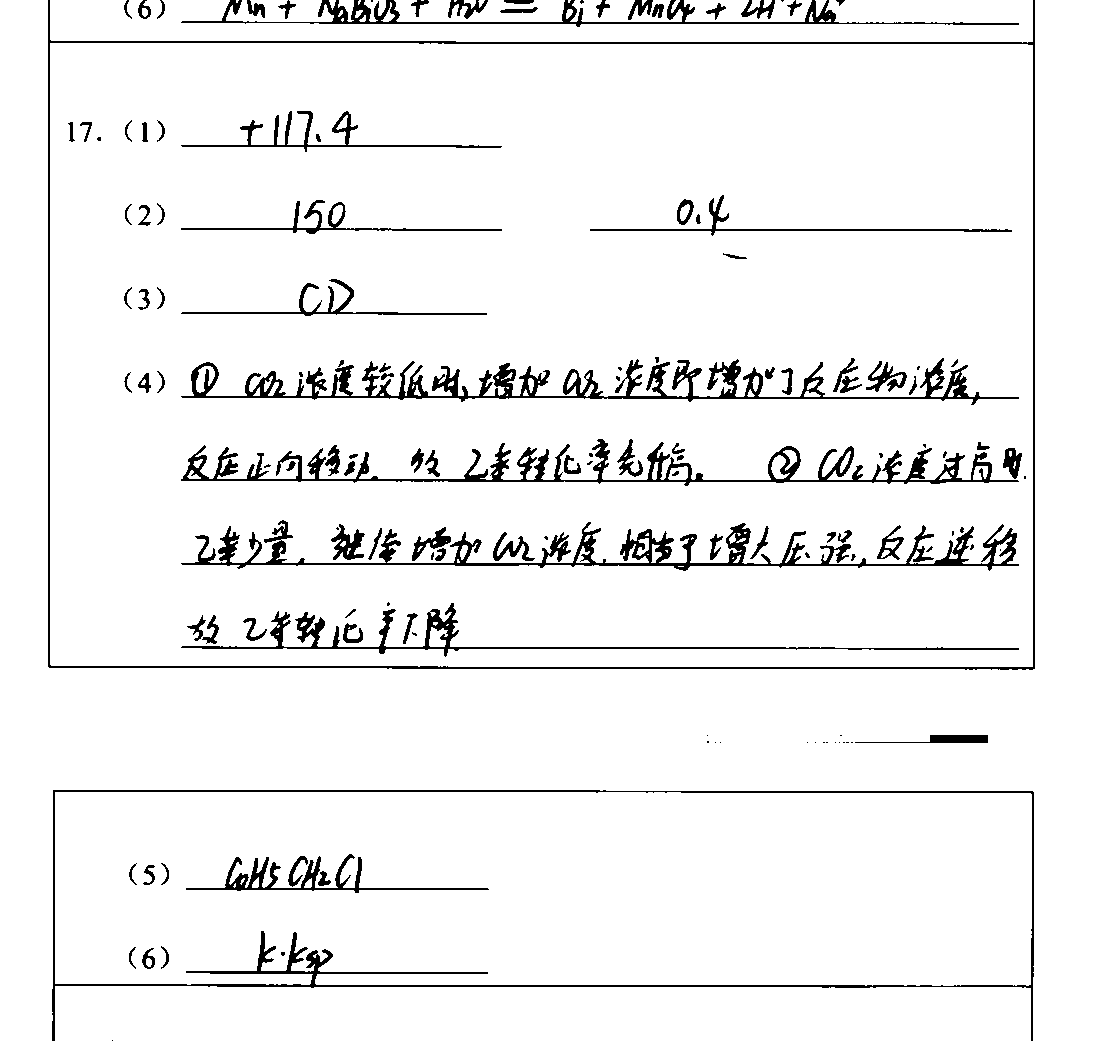 (6) Mn + NaBiO3 + H2O = Bi + MnO4 + 2H + Na+
17. (1) +117.4
(2) 150 0.4
(3) CD
(4) ① CO2浓度较低时,增加CO2浓度即增加了反应物浓度,
反应正向移动.故乙苯转化率先升高. ② CO2浓度过高时
乙苯少量,继续增加CO2浓度.相当于增大压强,反应逆移
故乙苯转化率下降
(5) C6H5CH2Cl
(6) K·Ksp